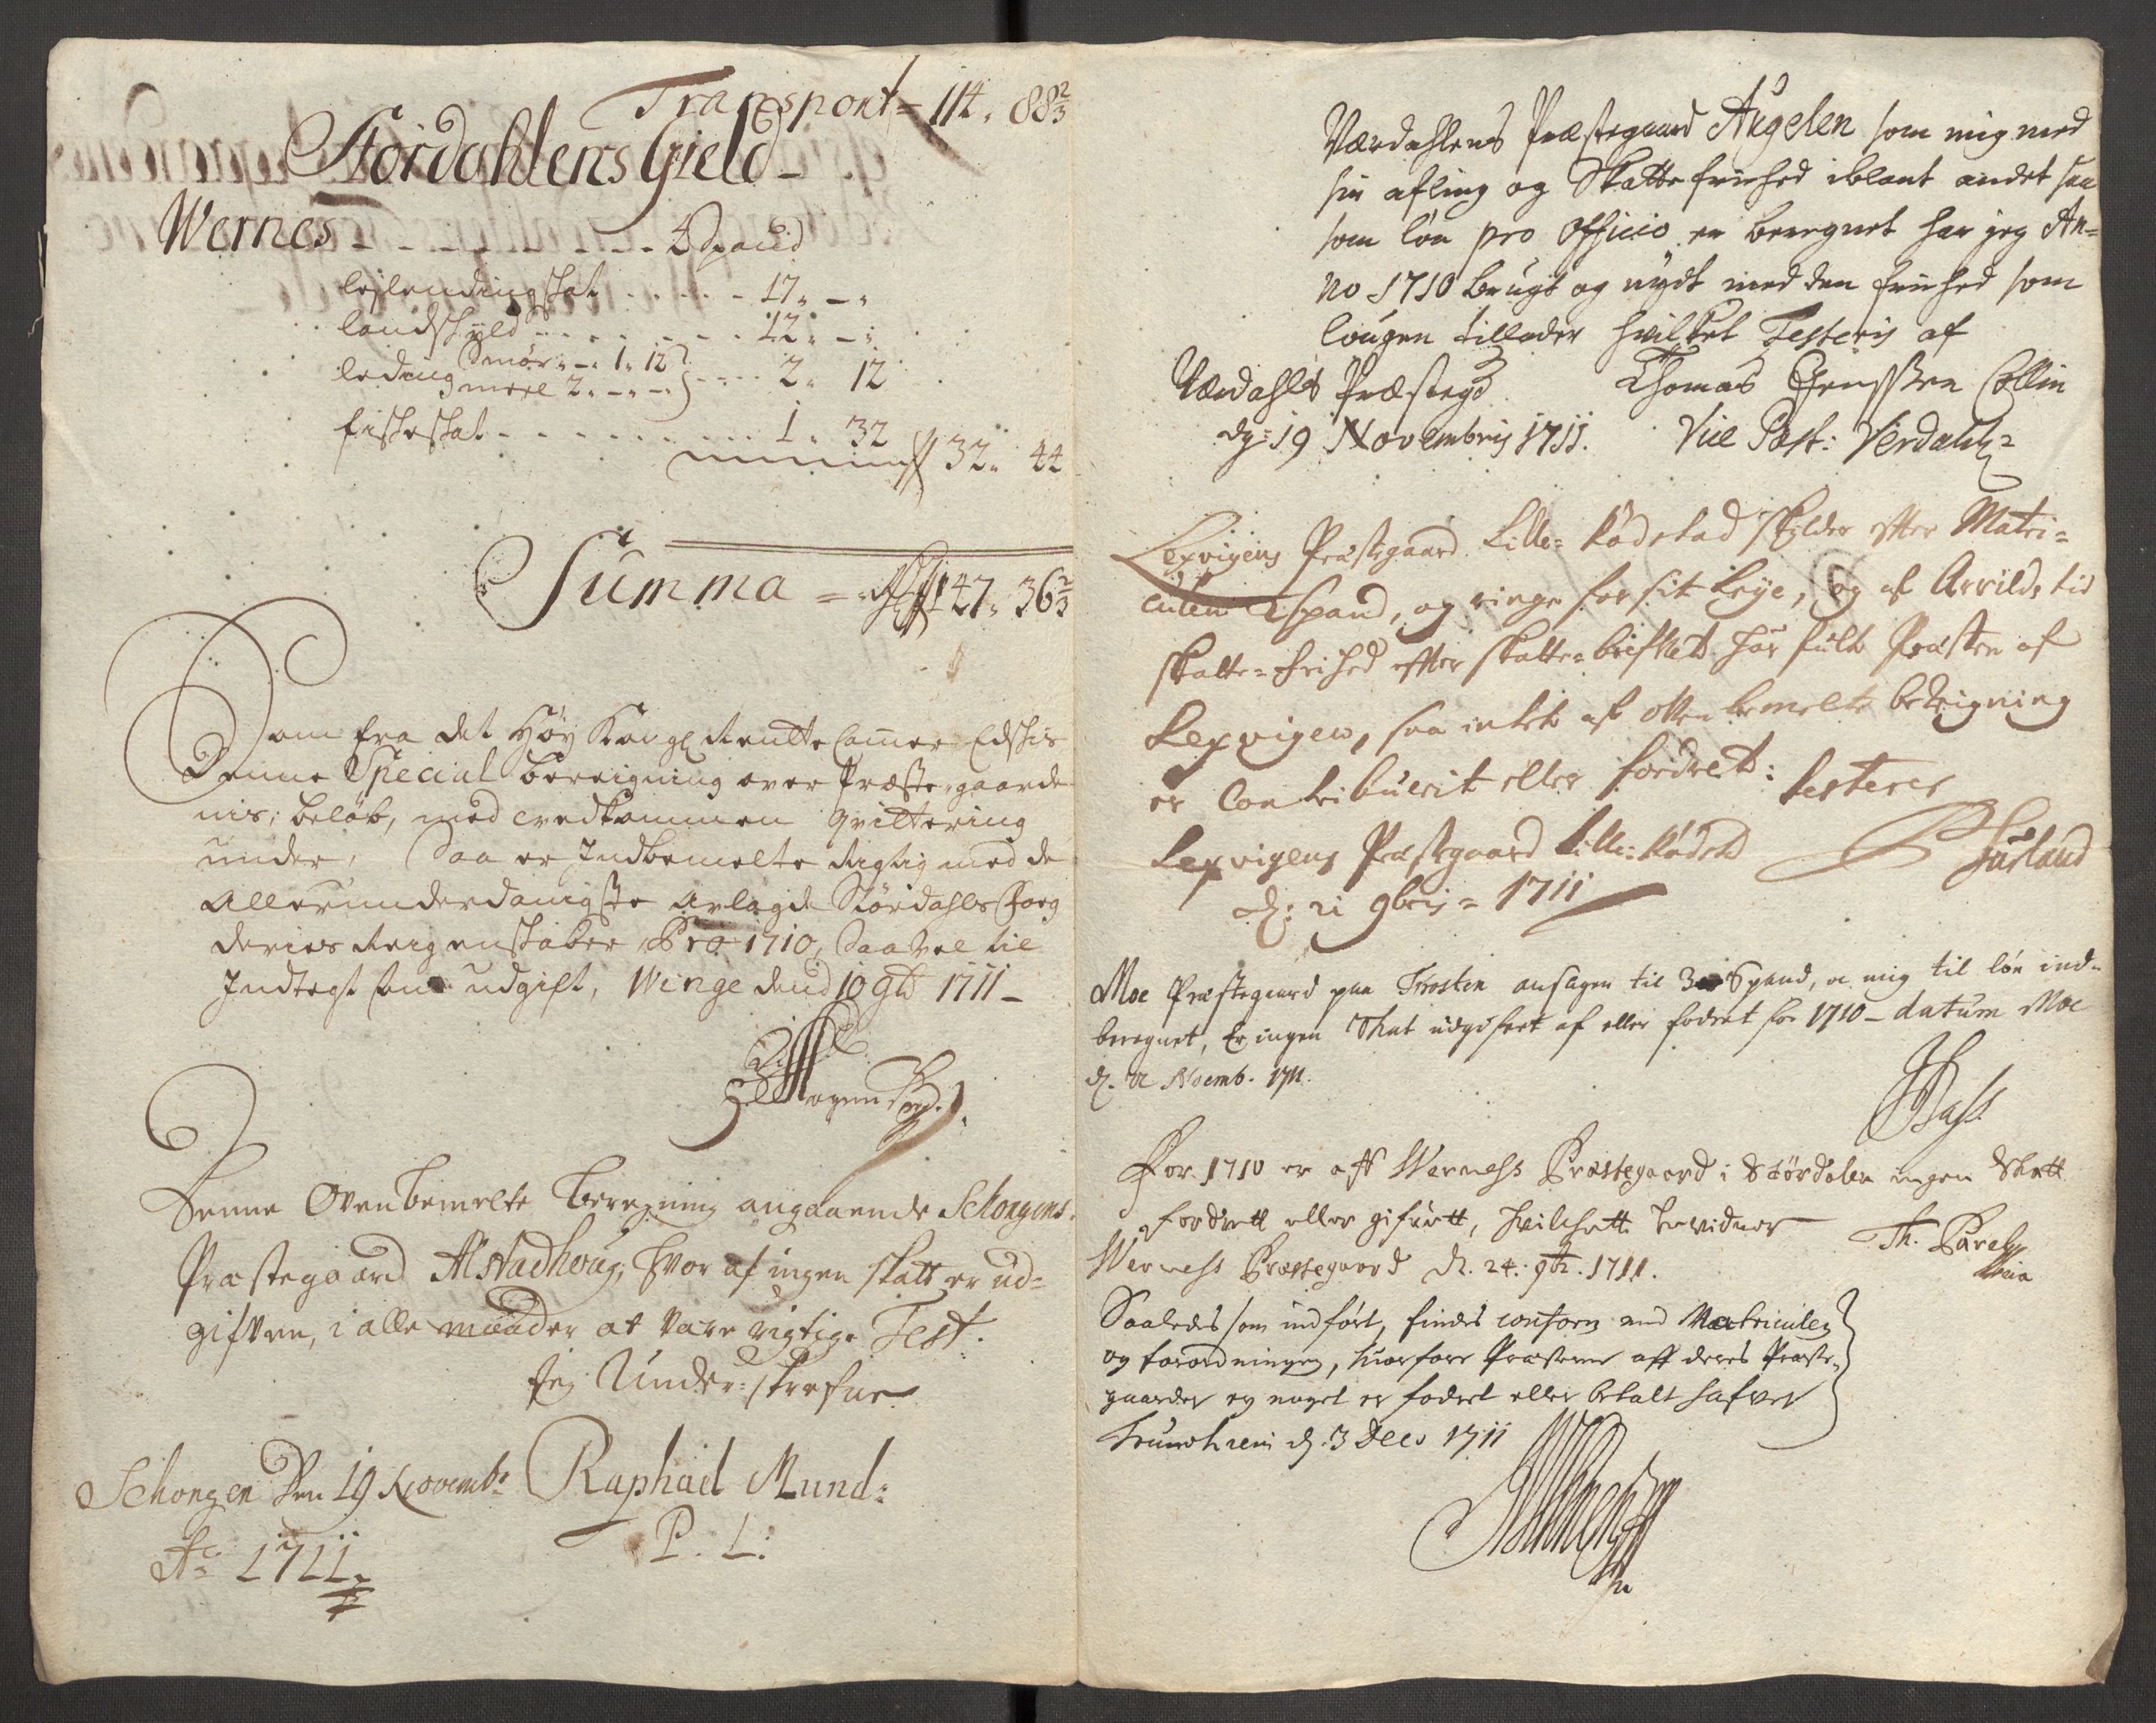 Transport = 114. 88 2/3
Størdahlens Gield -
Wernes - - - - - - - - - 4 Spand
leylendingskat . . . . . 17. - .
landschyld . . . . . . . 12. - .
leding Smør - 1. 12
meel 2. - . - . . . . . 2. 12
fiskeskat . . . . . . . . 1. 32
32. 44
Summa = 147. 36 2/3
Som fra det Høy Kongl. Rentte Camer Edskis
Denne Special bereigning over Præstegaarde
nis beløb, med vedkommen qvittering
under, Saa er Indbemelte Rigtig med de
allerunderdanigste aflagde Størdahls Foeg
deries Reigenskaber Pro 1710, Saa vel til
Indtegt som udgift, Winge dend 10 9br 1711 -
Denne Ovenbemelte beregning angaaende Schongens
Præstegaard Alstadhoug, hvor af ingen skatt er ud-
gifven, i alle maader at være rigtig Test.
Jeg Under-skrefne
Schongen den 19 Novemb: Raphael Mund:
Ao 1711 P. L:
Værdahlens Præstegaard Augelen som mig med
sin afling og Skatte friehed iblant andet saa
som løn pro Officio er beregnet har jeg An-
no 1710 brugt og nydt med den friehed som
lougen tillader hvilket Testeris af
Værdahls Præstegd Thomas Jenssen Collin
dg: 19 Novembris 1711. Vice Past: Verdal:
Lexvigens Præstegaard Lille-Rødstad skylder efter Matri-
culen 2 spand, og ringe for sit Leye, og af Arrilds tid
skatte-frihed efter skatte-brefved har fult Præsten af
Lexvigen, saa intet af ofvenbemelte bereigning
er Contribuerit eller fordret: testerer
Lexvigens Præstegaard Lille-Rødsta Jusland
d: 21 9bris = 1711
Moe Præstegaard paa Frosten ansagen til 3 Spand, er mig til løn ind-
beregnet, Er ingen Skat udgifvet af eller fodret for 1710 - datum Moe
d. 21 Novemb. 1711.
For 1710 er aff Werness Præstegaard i Størdalen ingen Skatt
fordrett eller gifvett, hvilchett bevidner
Werness Præstegaard d. 24. 9br. 1711. Th. Parel
Saaledes som indført, findes conform med Matriculen
og forordningen, huorfore Præsterne aff deres Præste-
gaarder ey noget er fodret eller betalt hafver
Trundhiem d. 3 Decb 1711